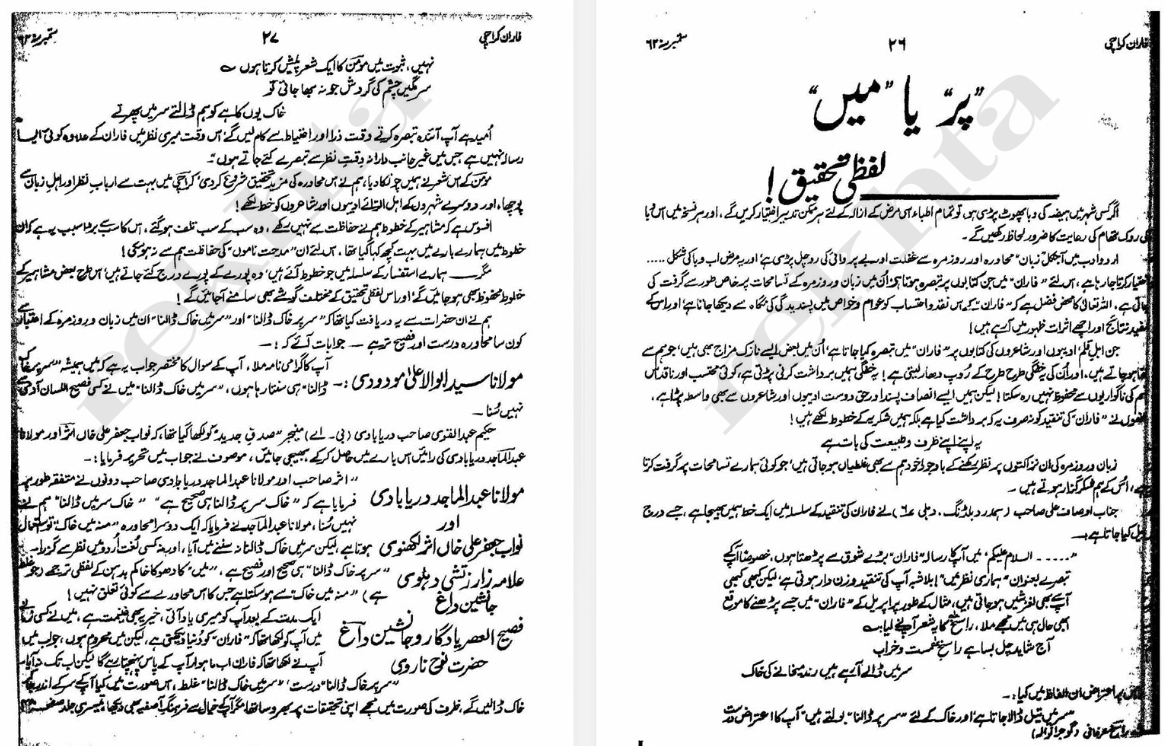 فاران کراچی ۲۶ ستمبر ۶۳ء
”پر“ یا ”میں“
لفظی تحقیق!
اگر کسی شہر میں ہیضہ کی وبا پھوٹ پڑی ہو تو تمام اطباء اس مرض کے ازالہ کے لئے ہر ممکن تدبیر اختیار کریں گے، اور ہر نسخہ میں اس وبا
کی روک تھام کی رعایت کا ضرور لحاظ رکھیں گے۔
اردو ادب میں آجکل زبان، محاورہ اور روزمرہ سے غفلت اور بے پروائی کی روچل پڑی ہے اور یہ مرض اب وبا کی شکل .....
اختیار کرتا جا رہا ہے، اس لئے ”فاران“ میں جن کتابوں پر تبصرہ ہوتا ہے، اُن میں زبان و روزمرہ کے تسامحات پر خاص طور سے گرفت کی
جاتی ہے، اللہ تعالیٰ کا محض فضل ہے کہ ”فاران“ کے اس نقد و احتساب کو عوام و خواص میں پسندیدگی کی نگاہ سے دیکھا جاتا ہے اور اس کے
مفید نتائج اور اچھے اثرات ظہور میں آرہے ہیں!
جن اہل قلم، ادیبوں اور شاعروں کی کتابوں پر ”فاران“ میں تبصرہ کیا جاتا ہے، اُن میں بعض ایسے نازک مزاج بھی ہیں، جو ہم سے
خفا ہو جاتے ہیں، اور اُن کی یہ خفگی طرح طرح کے رُوپ دھار لیتی ہے! یہ خفگی ہمیں برداشت کرنی پڑتی ہے، کوئی محتسب اور ناقد اس
قسم کی ناگواریوں سے محفوظ نہیں رہ سکتا! لیکن ہمیں ایسے انصاف پسند اور حق دوست ادیبوں اور شاعروں سے بھی واسطہ پڑا ہے،
جنھوں نے ”فاران“ کی تنقید کو نہ صرف یہ کہ برداشت کیا ہے بلکہ ہمیں شکریہ کے خطوط لکھے ہیں!
یہ اپنے اپنے ظرف و طبیعت کی بات ہے
زبان و روزمرہ کی ان نزاکتوں پر نظر رکھنے کے باوجود خود ہم سے بھی غلطیاں ہو جاتی ہیں، جو کوئی ہمارے تسامحات پر گرفت کرتا
ہے، اُس کے ہم شکر گزار ہوتے ہیں۔
جناب اوصاف علی صاحب (ہمدرد بلڈنگ۔ دہلی ۶) نے فاران کی تنقید کے سلسلہ میں ایک خط ہمیں بھیجا ہے، جسے درج
ذیل کیا جاتا ہے:۔
”...... السلام علیکم، میں آپکا رسالہ ”فاران“ بڑے شوق سے پڑھتا ہوں، خصوصاً آپکے
تبصرے بعنوان ”ہماری نظر میں“! بلاشبہ آپ کی تنقید وزن دار ہوتی ہے، لیکن کبھی کبھی
آپ سے بھی لغزشیں ہو جاتی ہیں، مثال کے طور پر اپریل کے ”فاران“ میں جسے پڑھنے کا موقع
ابھی حال ہی میں مجھے ملا، راسخ عظیم کا یہ شعر آپ نے لیا ہے
آج شاید چل بسا ہے راسخ غمست و خراب
سر میں ڈالے آرہے ہیں رند میخانے کی خاک
اس پر اعتراض ان الفاظ میں کیا:۔
”سر میں تیل ڈالا جاتا ہے، اور خاک کے لئے ”سر پر ڈالنا“ بولتے ہیں“ آپ کا اعتراض درست
راسخ عرفانی (گوجرانوالہ)
فاران کراچی ۲۷ ستمبر ۶۳ء
نہیں، ثبوت میں مومن کا ایک شعر پیش کرتا ہوں ؎
سرمگیں چشم کی گردش جو نہ بھا جاتی تو
خاک یوں کاہے کو ہم ڈالتے سر میں پھرتے
اُمید ہے آپ آئندہ تبصرہ کرتے وقت ذرا اور احتیاط سے کام لیں گے، اس وقت میری نظر میں فاران کے علاوہ کوئی ایسا
رسالہ نہیں ہے جس میں غیر جانب دارانہ وقتِ نظر سے تبصرے کئے جاتے ہوں“۔
مومن کے اس شعر نے ہمیں چونکا دیا، ہم نے اس محاورہ کی مزید تحقیق شروع کر دی، کراچی میں بہت سے ارباب نظر اور اہل زبان سے
پوچھا، اور دوسرے شہروں کے اہل الرائے ادیبوں اور شاعروں کو خط لکھے!
افسوس ہے کہ مشاہیر کے خطوط ہم نے حفاظت سے نہیں رکھے، وہ سب کے سب تلف ہو گئے، اس کا سب سے بڑا سبب یہ ہے کہ ان
خطوط میں ہمارے بارے میں بہت کچھ کہا گیا تھا، اس لئے ان ”مدحت ناموں“ کی حفاظت ہم سے نہ ہو سکی!
مگر — ہمارے استفسار کے سلسلہ میں جو خطوط آئے ہیں، وہ پورے کے پورے درج کئے جاتے ہیں، اس طرح بعض مشاہیر کے
خطوط محفوظ بھی ہو جائیں گے، اور اس لفظی تحقیق کے مختلف گوشے بھی سامنے آجائیں گے!
ہم نے ان حضرات سے یہ دریافت کیا تھا کہ ”سر پر خاک ڈالنا“ اور ”سر میں خاک ڈالنا“ ان میں زبان و روزمرہ کے اعتبار سے
کون سا محاورہ درست اور فصیح تر ہے — جوابات آئے کہ:۔
مولانا سید ابوالاعلیٰ مودودی:۔ آپ کا گرامی نامہ ملا، آپ کے سوال کا مختصر جواب یہ ہے کہ میں ہمیشہ ”سر پر خاک
ڈالنا“ ہی سنتا رہا ہوں، ”سر میں خاک ڈالنا“ میں نے کسی فصیح اللسان آدمی سے
نہیں سُنا۔
حکیم عبدالقوی صاحب دریا بادی (بی۔ اے) منیجر ”صدق جدید“ کو لکھا گیا تھا کہ نواب جعفر علی خاں اثر اور مولانا
عبدالماجد دریا بادی کی رائیں اس بارے میں حاصل کر کے بھیجی جائیں، موصوف نے جواب میں تحریر فرمایا:۔
مولانا عبدالماجد دریا بادی
اور
نواب جعفر علی خاں اثر لکھنوی
”اثر صاحب اور مولانا عبدالماجد دریا بادی صاحب دونوں نے متفقہ طور پر
فرمایا ہے کہ ”خاک سر پر ڈالنا ہی صحیح ہے“ ”خاک سر میں ڈالنا“ ہم نے
نہیں سُنا، مولانا عبدالماجد نے فرمایا کہ ایک دوسرا محاورہ ”منہ میں خاک“ تو استعمال
ہوتا ہے، لیکن سر میں خاک ڈالنا نہ سننے میں آیا، اور نہ کسی لغت اُردو میں نظر سے گذرا۔
علامہ زار زتشی دہلوی
جانشین داغ
”سر پر خاک ڈالنا“ ہی صحیح اور فصیح ہے، ”میں“ کا دھوکا خاکم بدہن کے لفظی ترجمے (جو غلط
ہے) ”منہ میں خاک“ سے ہو سکتا ہے جس کا اس محاورے سے کوئی تعلق نہیں!
فصیح العصر یادگار و جانشین داغ
حضرت نوح ناروی
ایک مدت کے بعد آپ کو میری یاد آئی، خیر یہ بھی غنیمت ہے، میں نے کسی زمانہ
میں آپ کو لکھا تھا کہ ”فاران“ کو دُنیا دیکھتی ہے، لیکن میں محروم ہوں، جواب میں
آپ نے لکھا تھا کہ فاران اب ماہ بماہ آپ کے پاس پہنچتا رہے گا لیکن اب تک نہ آیا۔
”سر پر خاک ڈالنا“ درست، ”سر میں خاک ڈالنا“ غلط، اس صورت میں کیا آپ کے سر کے اندر
خاک ڈالیں گے، ظرف کی صورت میں مجھے اپنی تحقیقات پر بھروسا تھا مگر آپ کے خیال سے فرہنگ آصفیہ بھی دیکھا، تیسری جلد صفحہ
rekhta
rekhta